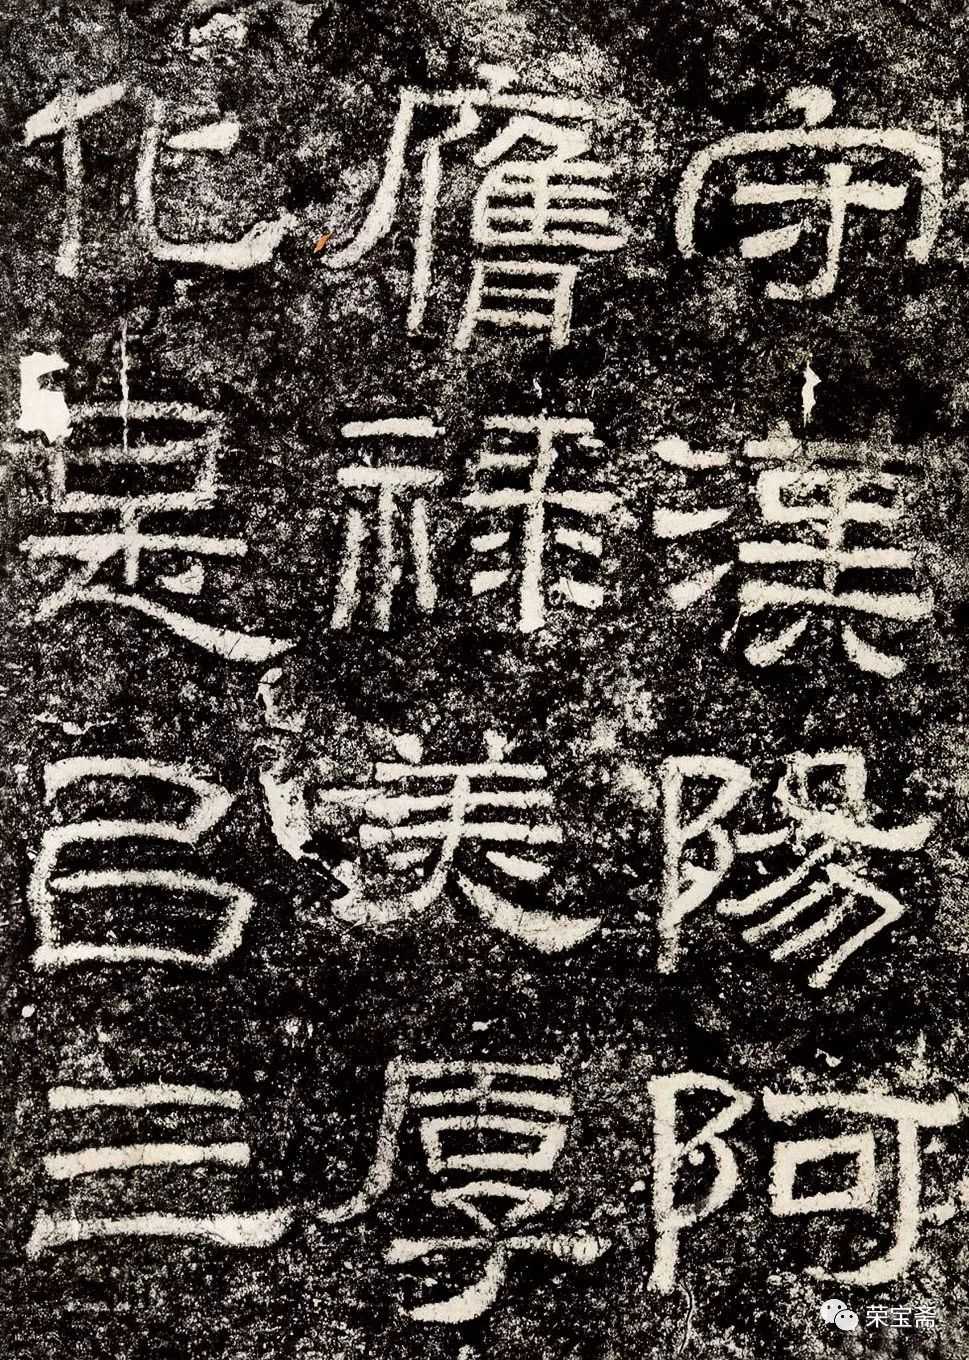 守漢陽阿
膺祿美厚
化是㠯三
荣宝斋